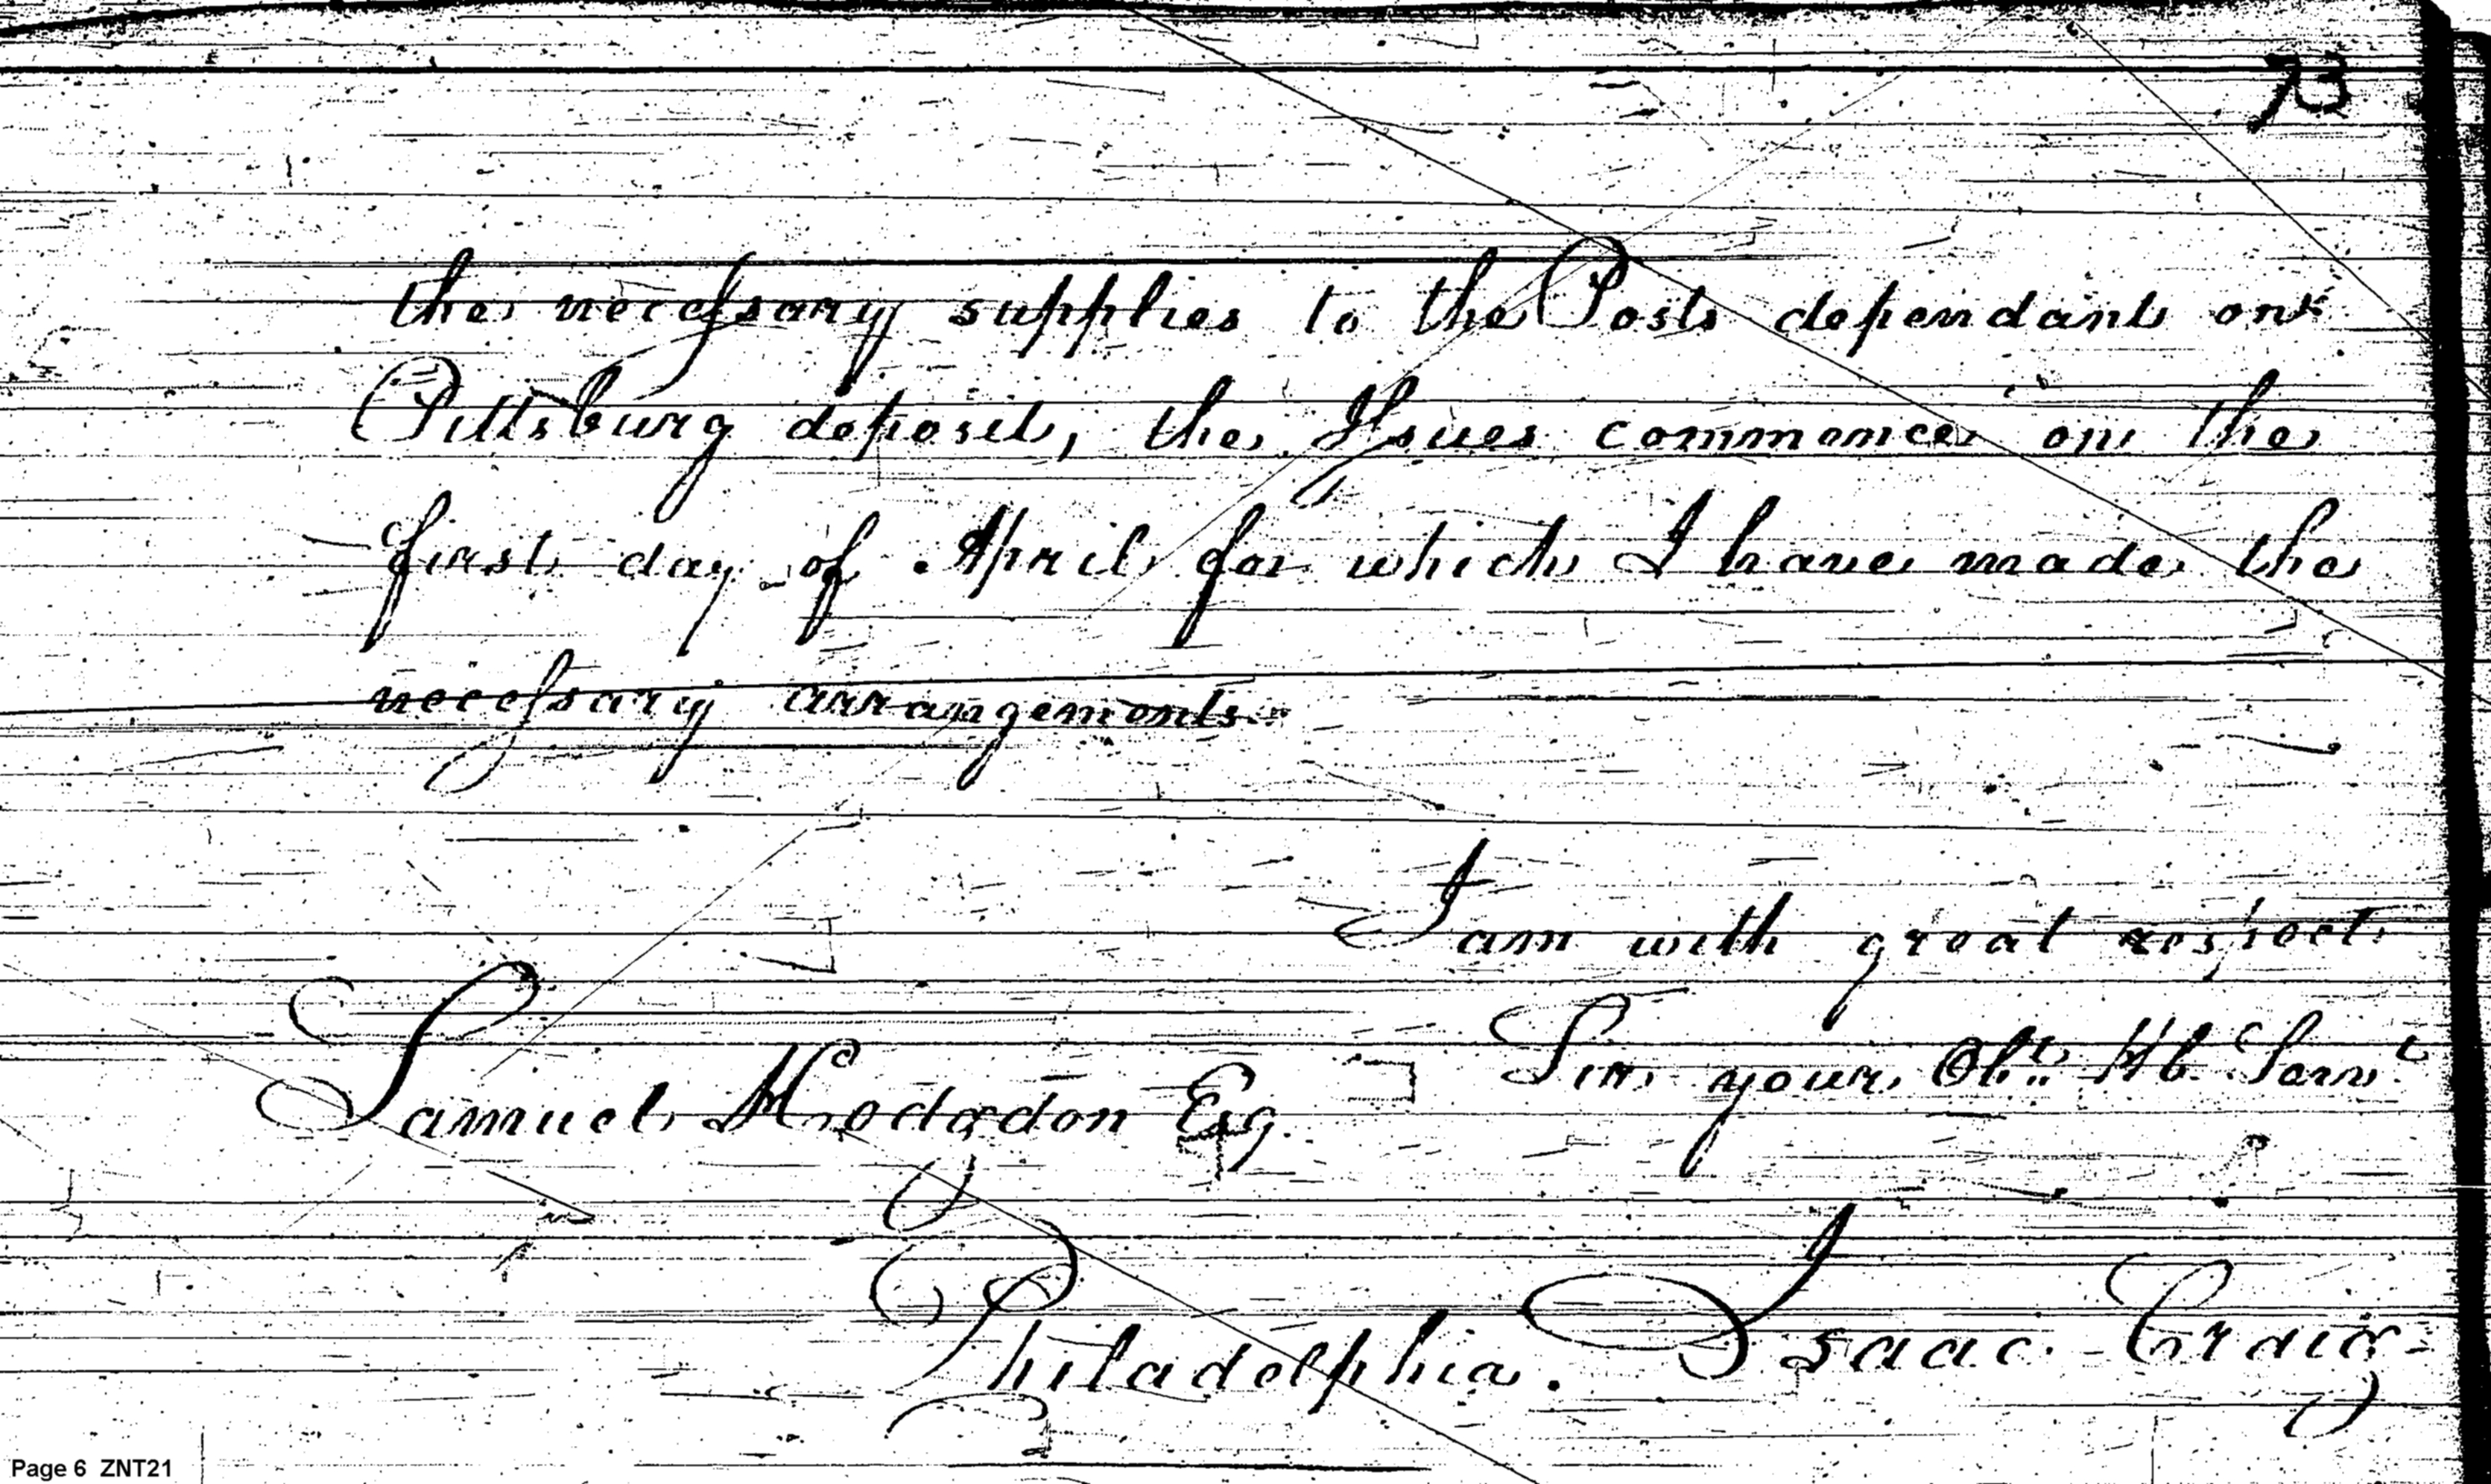 73
the necessary supplies to the Posts dependant on
Pittsburg deposit, the Issues commence on the
first day of April for which I have made the
necessary arrangements
I am with great respect
Sir your Obt. Hb. Servt
Samuel Hodgdon Esq.
Philadelphia. Isaac Craig
Page 6 ZNT21